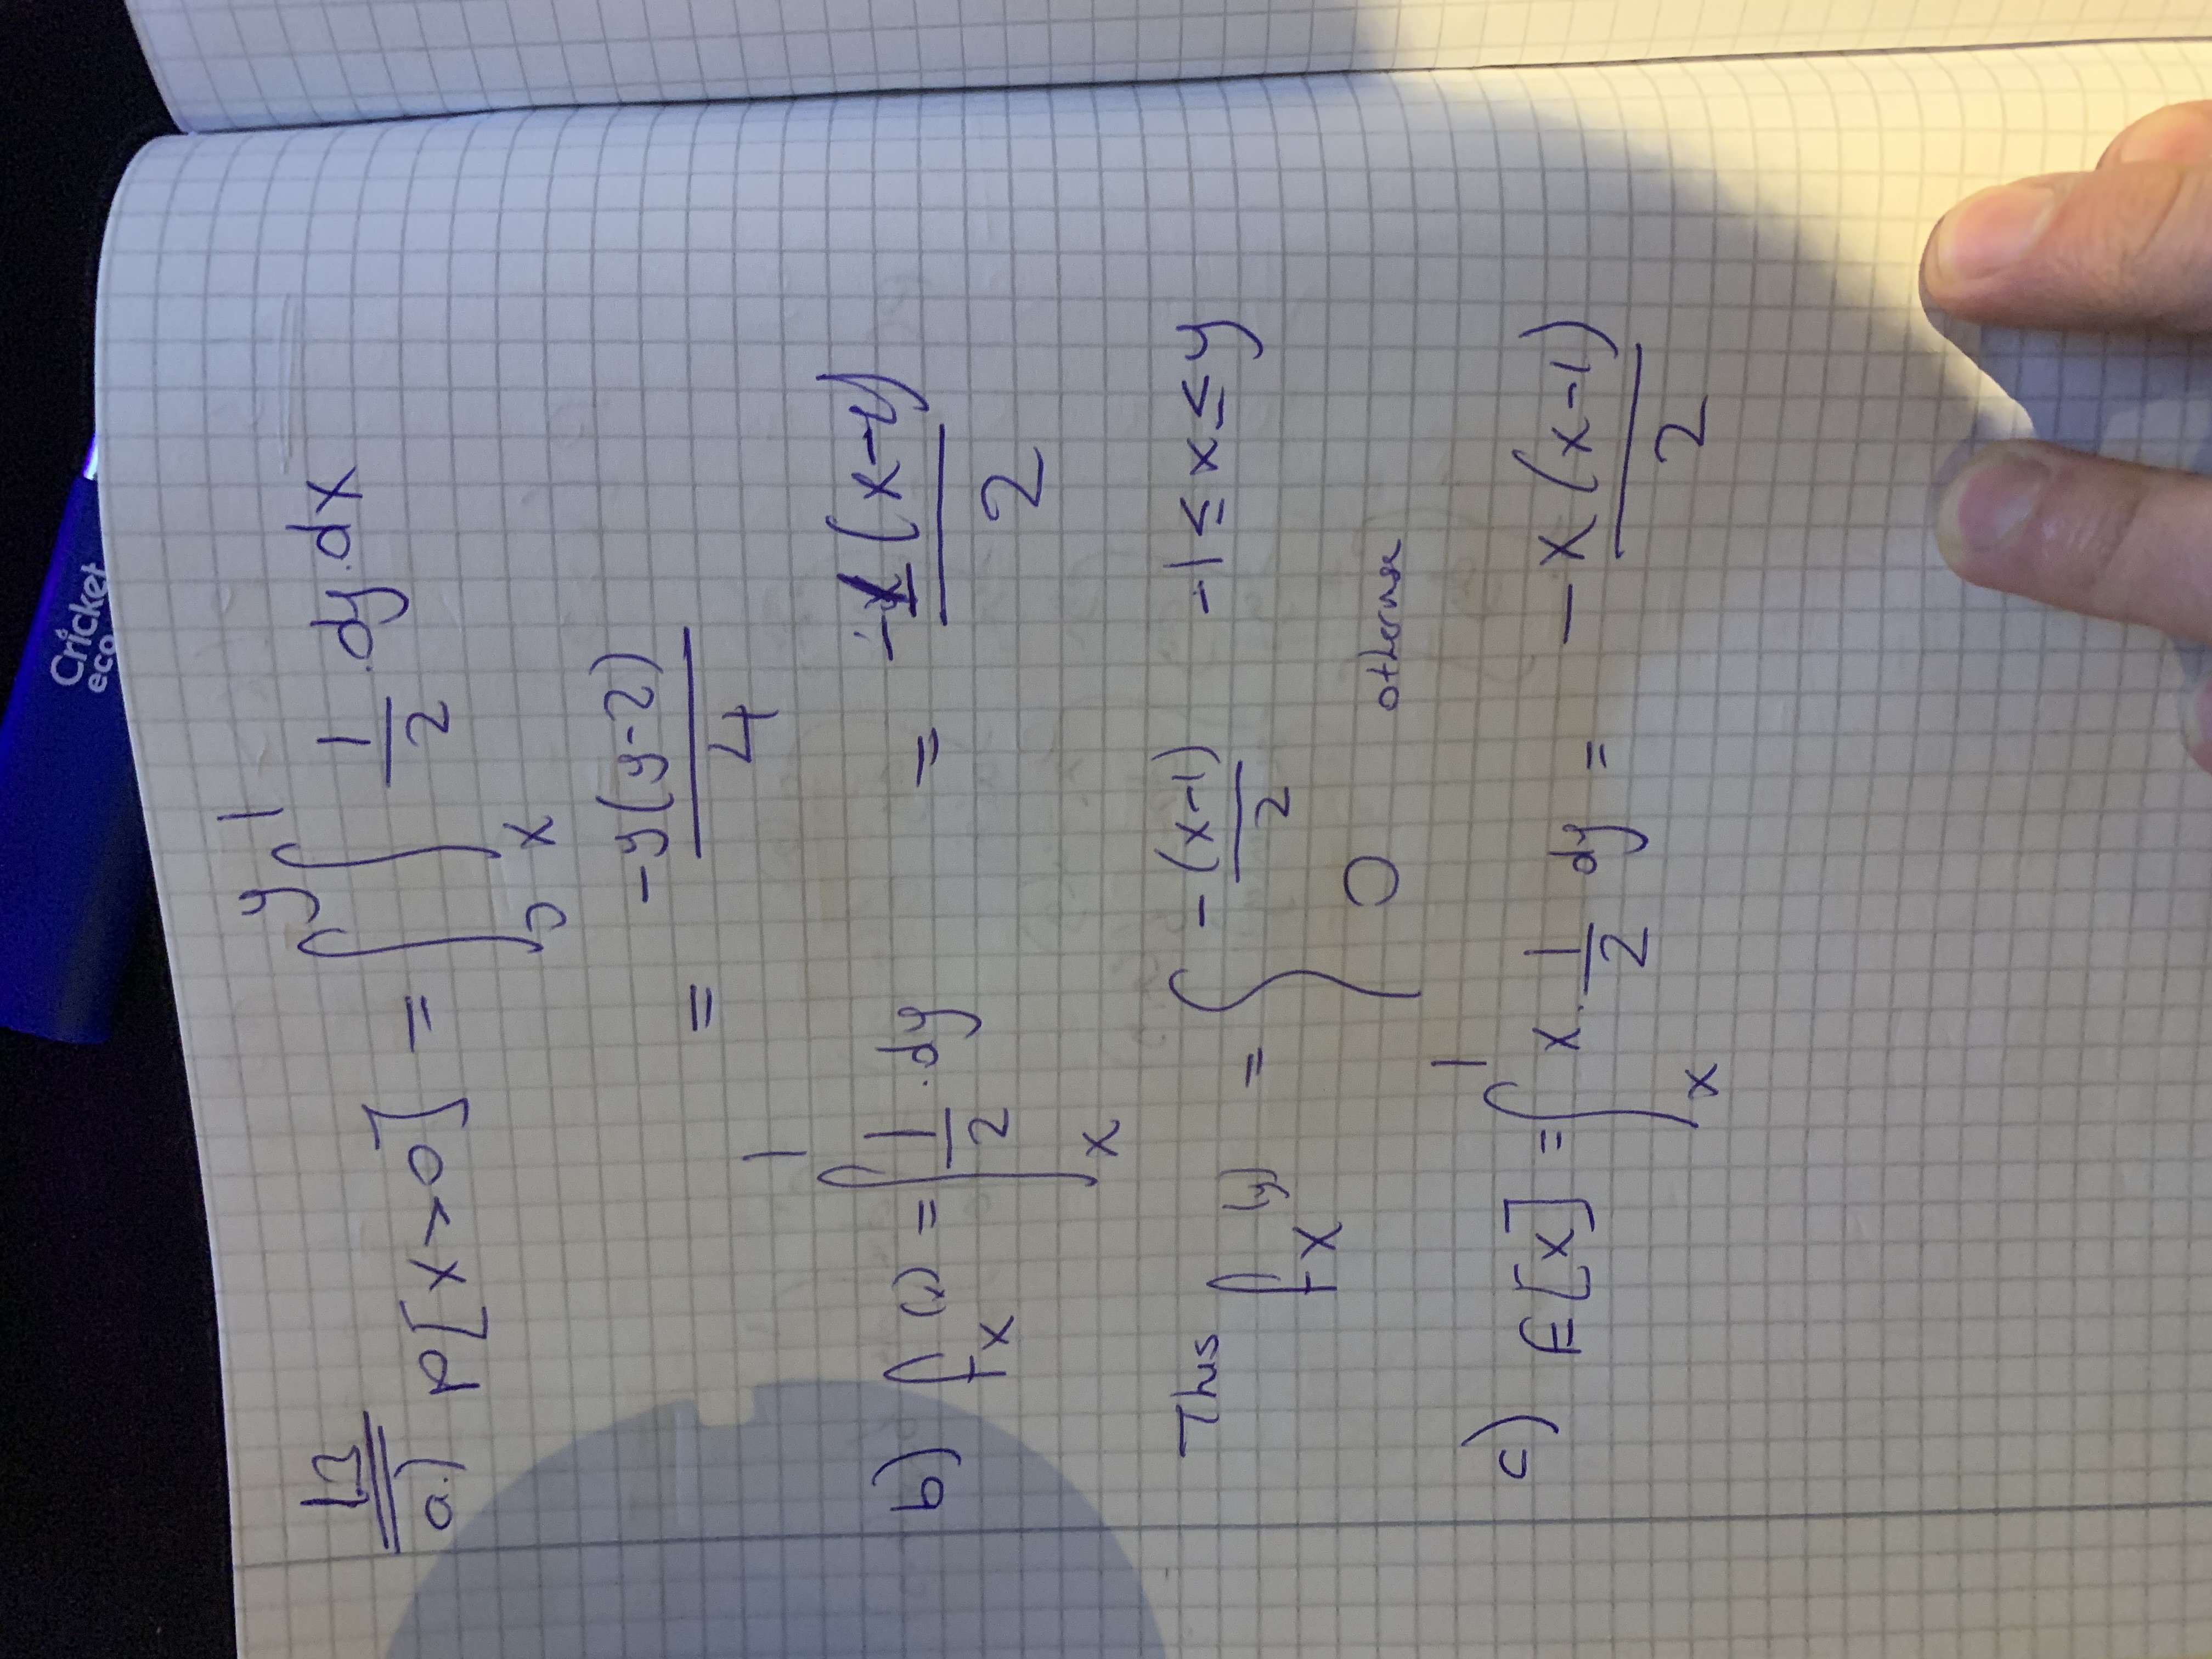 Cricket
eco
13
a.) P[X>0] = ∫_0^y ∫_x^1 1/2 .dy.dx
= -y(y-2)/4
b) f_X(x) = ∫_x^1 1/2 .dy = -(x-1)/2
This f_X(y) = { -(x-1)/2 -1≤x≤y
0 otherwise
c) E[X] = ∫_x^1 x. 1/2 dy = -x(x-1)/2